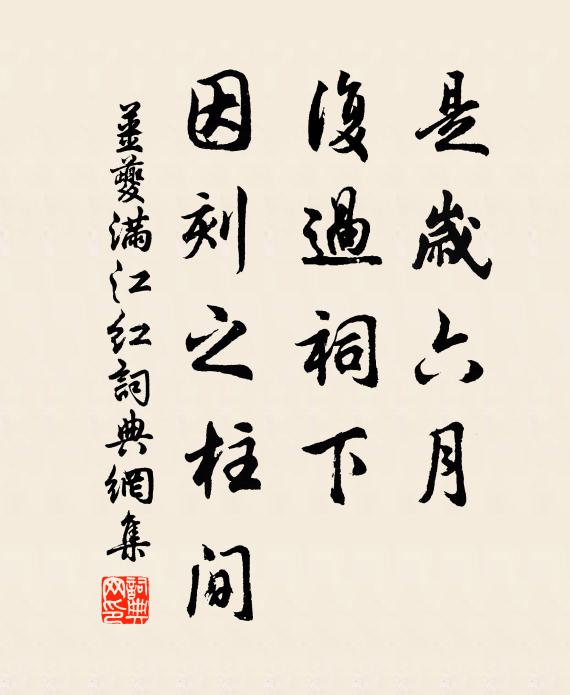 是歲六月
復過祠下
因刻之柱間
姜夔滿江紅詞典網集
詞典網印